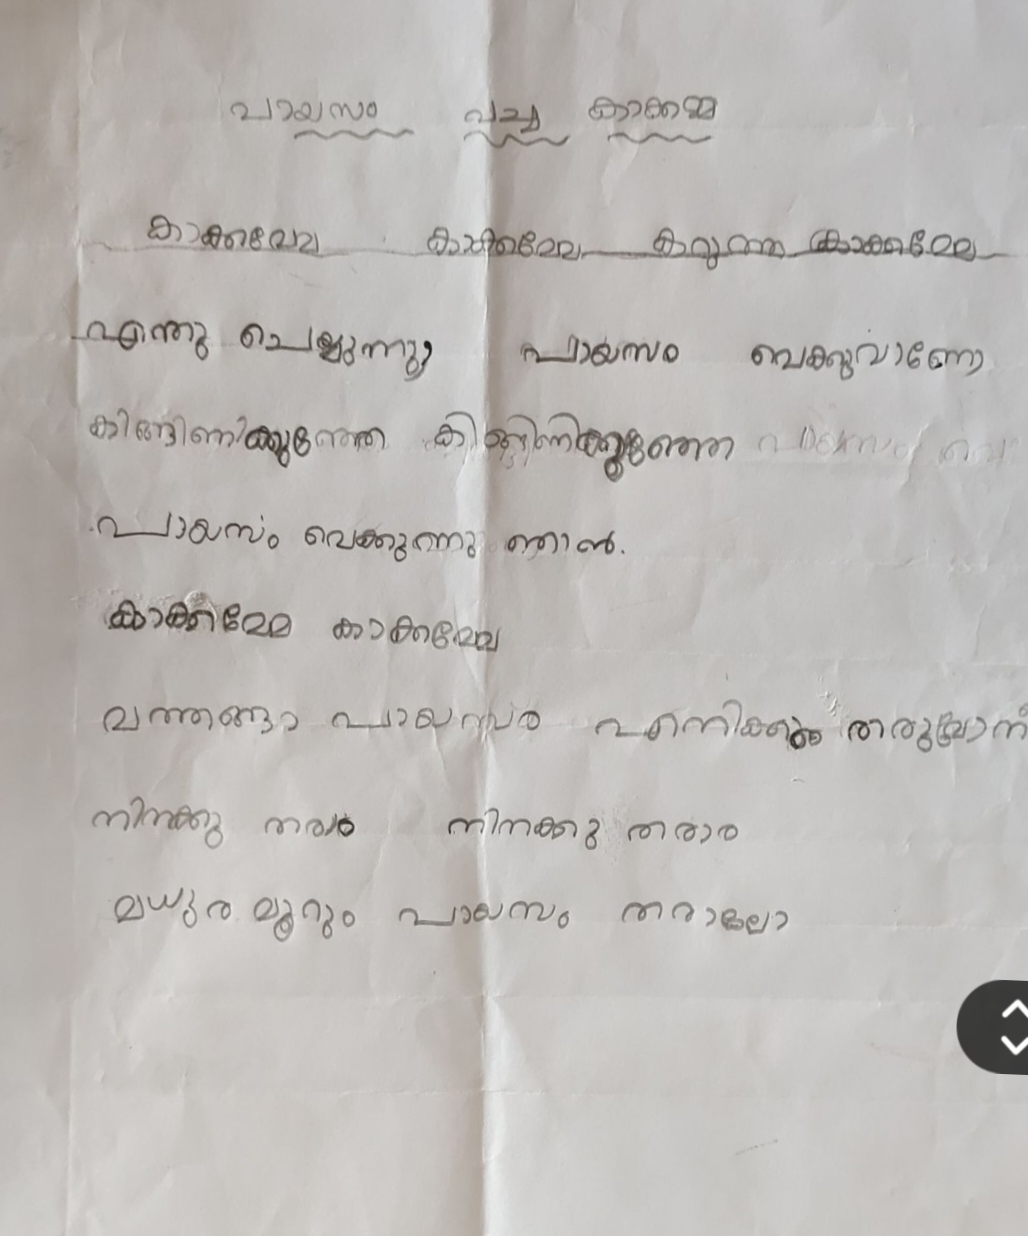 പായസം വച്ച കാക്കമ്മ
കാക്കമ്മേ കാക്കമ്മേ കറുത്ത കാക്കമ്മേ
എന്തു ചെയ്യുന്നു, പായസം വെക്കുവാണോ
കിങ്ങിണിക്കുഞ്ഞേ കിങ്ങിണിക്കുഞ്ഞേ
പായസം വെക്കുന്നു ഞാൻ.
കാക്കമ്മേ കാക്കമ്മേ
വത്തങ്ങാ പായസം എനിക്കും
നിനക്കു തരാം നിനക്കു തരാം
മധുരമൂറും പായസം തരാലോ